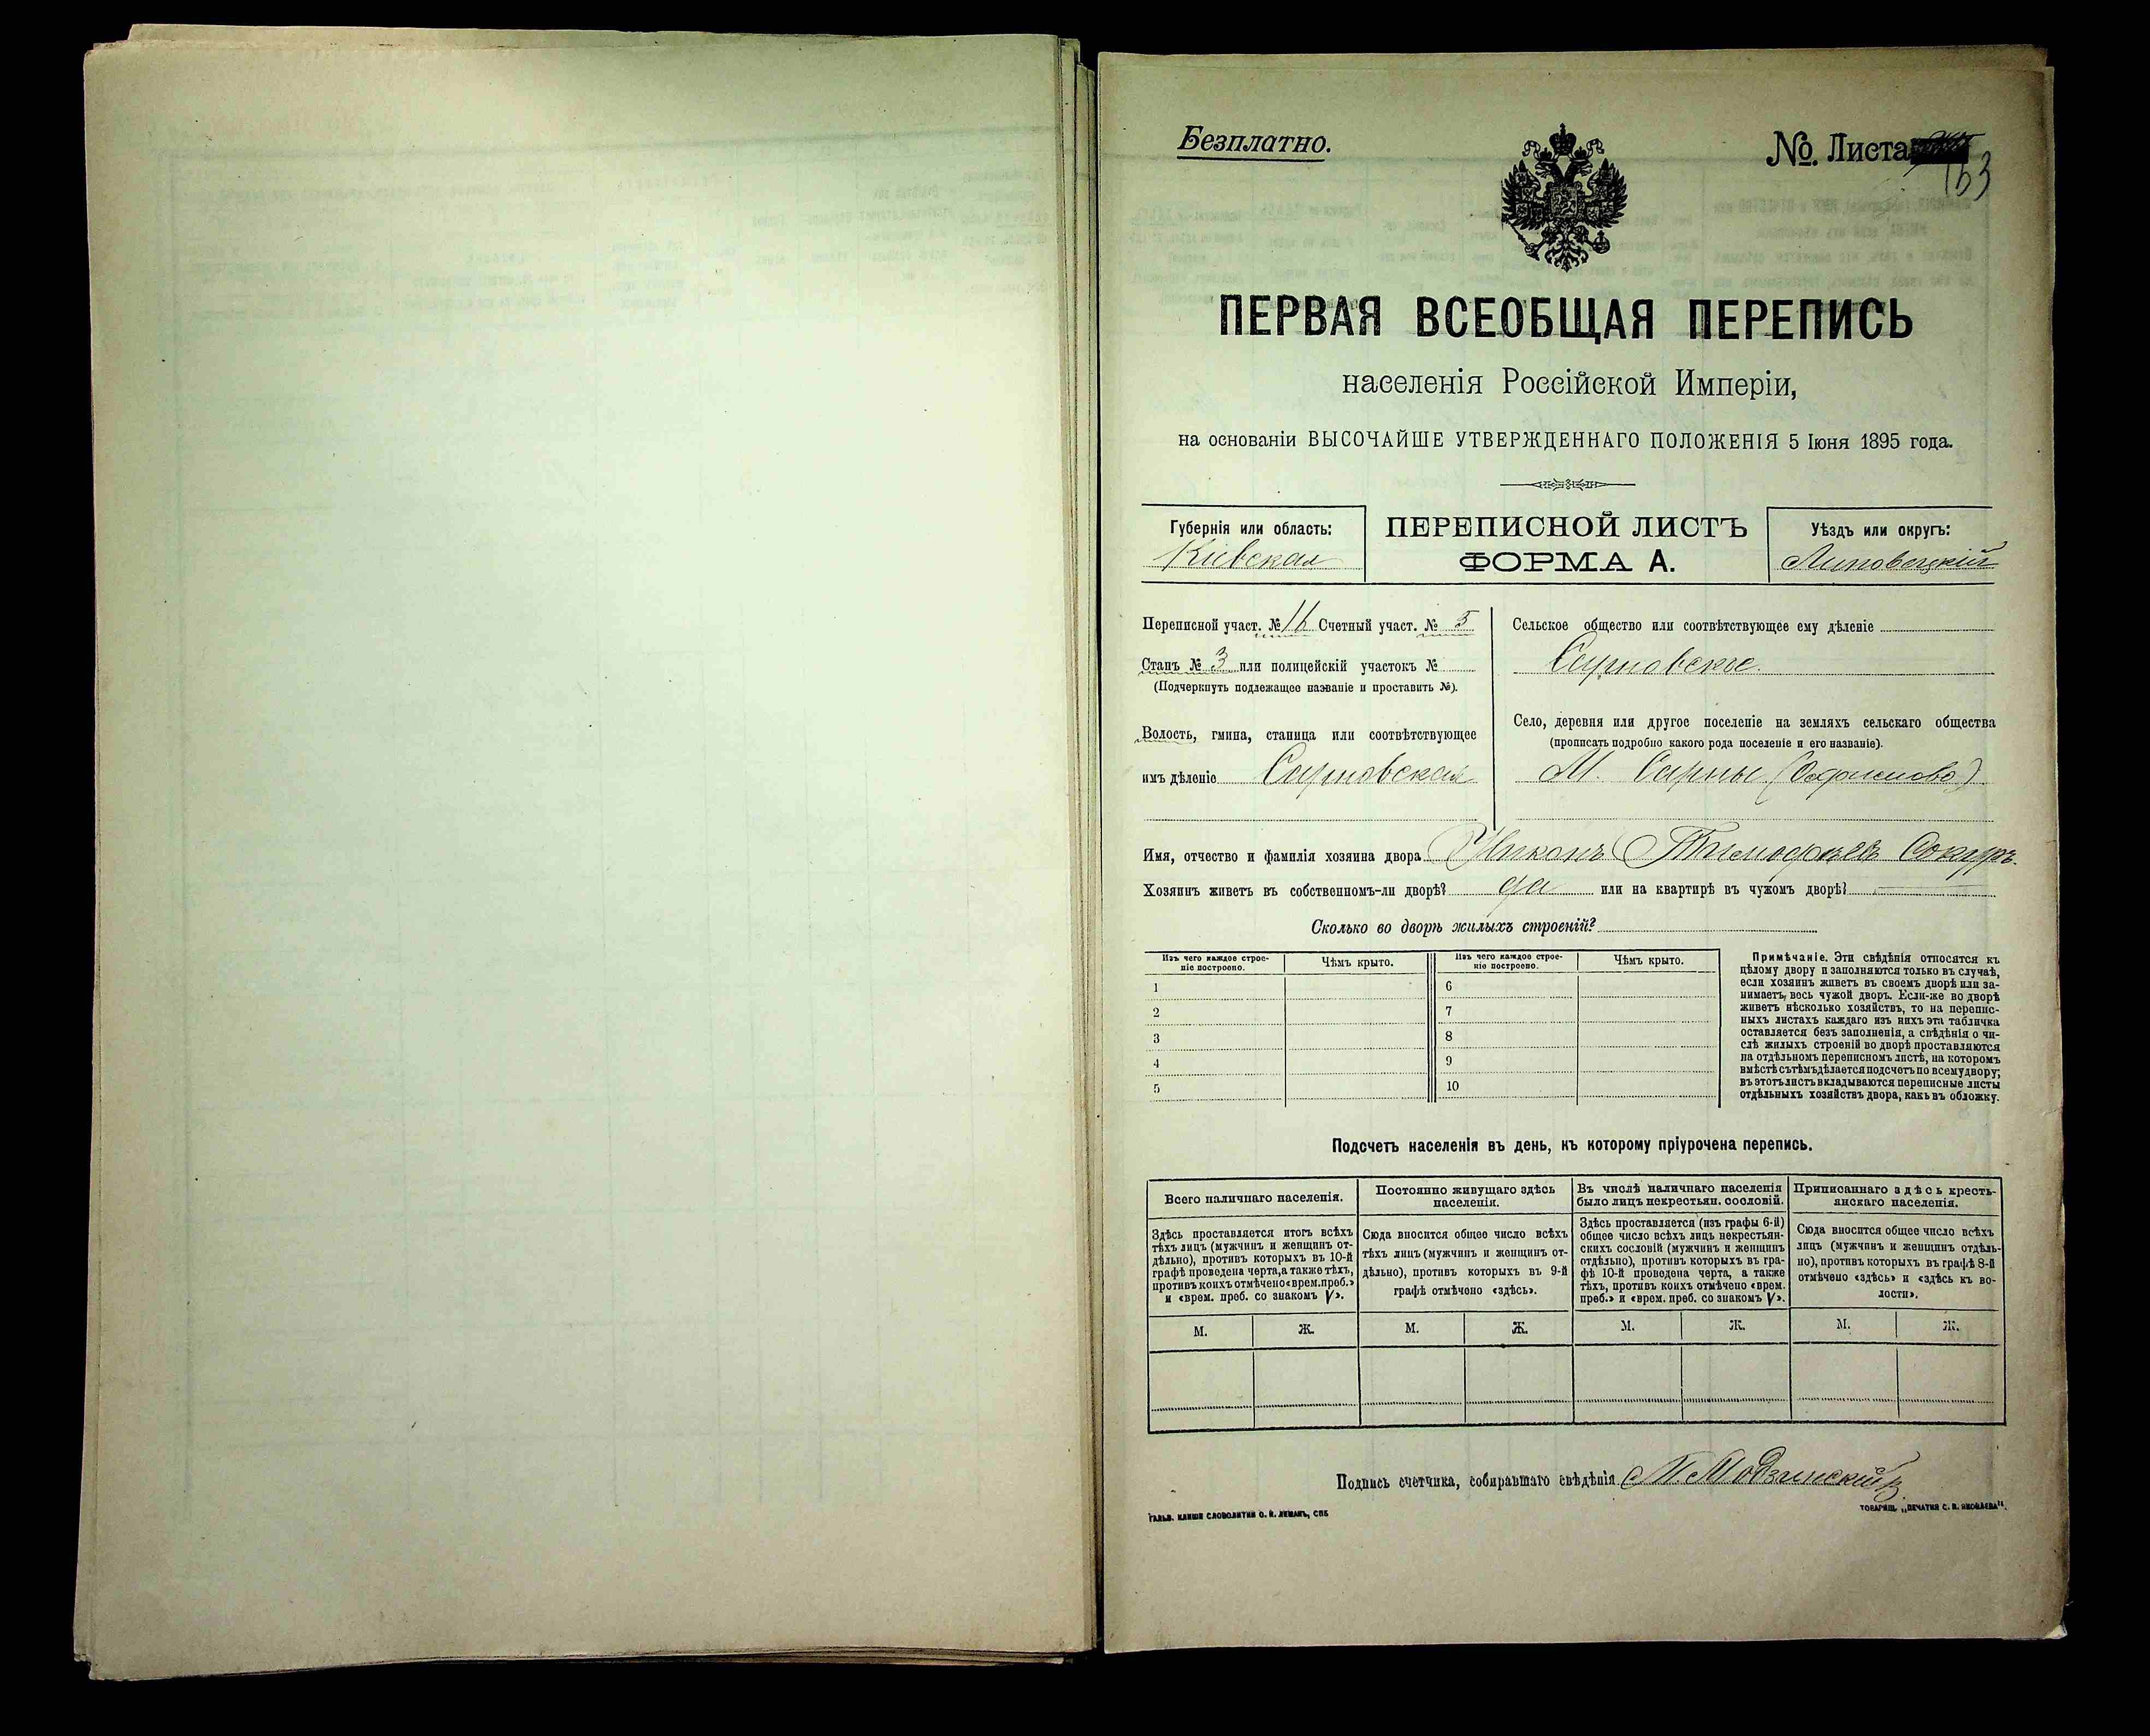 Безплатно.
№. Листа 163
ПЕРВАЯ ВСЕОБЩАЯ ПЕРЕПИСЬ
населенія Россійской Имперіи,
на основаніи ВЫСОЧАЙШЕ УТВЕРЖДЕННАГО ПОЛОЖЕНІЯ 5 Іюня 1895 года.
Губернія или область:
Кіевская
ПЕРЕПИСНОЙ ЛИСТЪ
ФОРМА А.
Уѣздъ или округъ:
Липовецкій
Переписной участ. № 16 Счетный участ. № 5
Станъ № 3 или полицейскій участокъ №
(Подчеркнуть подлежащее названіе и проставить №).
Волость, гмина, станица или соотвѣтствующее
имъ дѣленіе Сарновская
Сельское общество или соотвѣтствующее ему дѣленіе
Сарновское.
Село, деревня или другое поселеніе на земляхъ сельскаго общества
(прописать подробно какого рода поселеніе и его названіе).
М. Сарны
Имя, отчество и фамилія хозяина двора Никонъ Тимофѣевъ Сокуръ.
Хозяинъ живетъ въ собственномъ-ли дворѣ? да или на квартирѣ въ чужомъ дворѣ?
Сколько во дворѣ жилыхъ строеній?
Изъ чего каждое строе-
ніе построено.
Чѣмъ крыто.
Изъ чего каждое строе-
ніе построено.
Чѣмъ крыто.
1
2
3
4
5
6
7
8
9
10
Примѣчаніе. Эти свѣдѣнія относятся къ
цѣлому двору и заполняются только въ случаѣ,
если хозяинъ живетъ въ своемъ дворѣ или за-
нимаетъ весь чужой дворъ. Если-же во дворѣ
живетъ нѣсколько хозяйствъ, то на перепис-
ныхъ листахъ каждаго изъ нихъ эта табличка
оставляется безъ заполненія, а свѣдѣнія о чи-
слѣ жилыхъ строеній во дворѣ проставляются
на отдѣльномъ переписномъ листѣ, на которомъ
вмѣстѣ съ тѣмъ дѣлается подсчетъ по всему двору;
въ этотъ листъ вкладываются переписные листы
отдѣльныхъ хозяйствъ двора, какъ въ обложку.
Подсчетъ населенія въ день, къ которому пріурочена перепись.
Всего наличнаго населенія.
Здѣсь проставляется итогъ всѣхъ
тѣхъ лицъ (мужчинъ и женщинъ от-
дѣльно), противъ которыхъ въ 10-й
графѣ проведена черта, а также тѣхъ,
противъ коихъ отмѣчено «врем. преб.»
и «врем. преб. со знакомъ V».
М.
Ж.
Постоянно живущаго здѣсь
населенія.
Сюда вносится общее число всѣхъ
тѣхъ лицъ (мужчинъ и женщинъ от-
дѣльно), противъ которыхъ въ 9-й
графѣ отмѣчено «здѣсь».
М.
Ж.
Въ числѣ наличнаго населенія
было лицъ некрестьян. сословій.
Здѣсь проставляется (изъ графы 6-й)
общее число всѣхъ лицъ некрестьян-
скихъ сословій (мужчинъ и женщинъ
отдѣльно), противъ которыхъ въ гра-
фѣ 10-й проведена черта, а также
тѣхъ, противъ коихъ отмѣчено «врем.
преб.» и «врем. преб. со знакомъ V».
М.
Ж.
Приписаннаго здѣсь кресть-
янскаго населенія.
Сюда вносится общее число всѣхъ
лицъ (мужчинъ и женщинъ отдѣль-
но), противъ которыхъ въ графѣ 8-й
отмѣчено «здѣсь» и «здѣсь къ во-
лости».
М.
Ж.
Подпись счетчика, собиравшаго свѣдѣнія
ГАЛЬВ. КЛИШЕ СЛОВОЛИТНИ О. И. ЛЕМАНЪ, СПБ
ТОВАРИЩ. „ПЕЧАТНЯ С. П. ЯКОВЛЕВА".